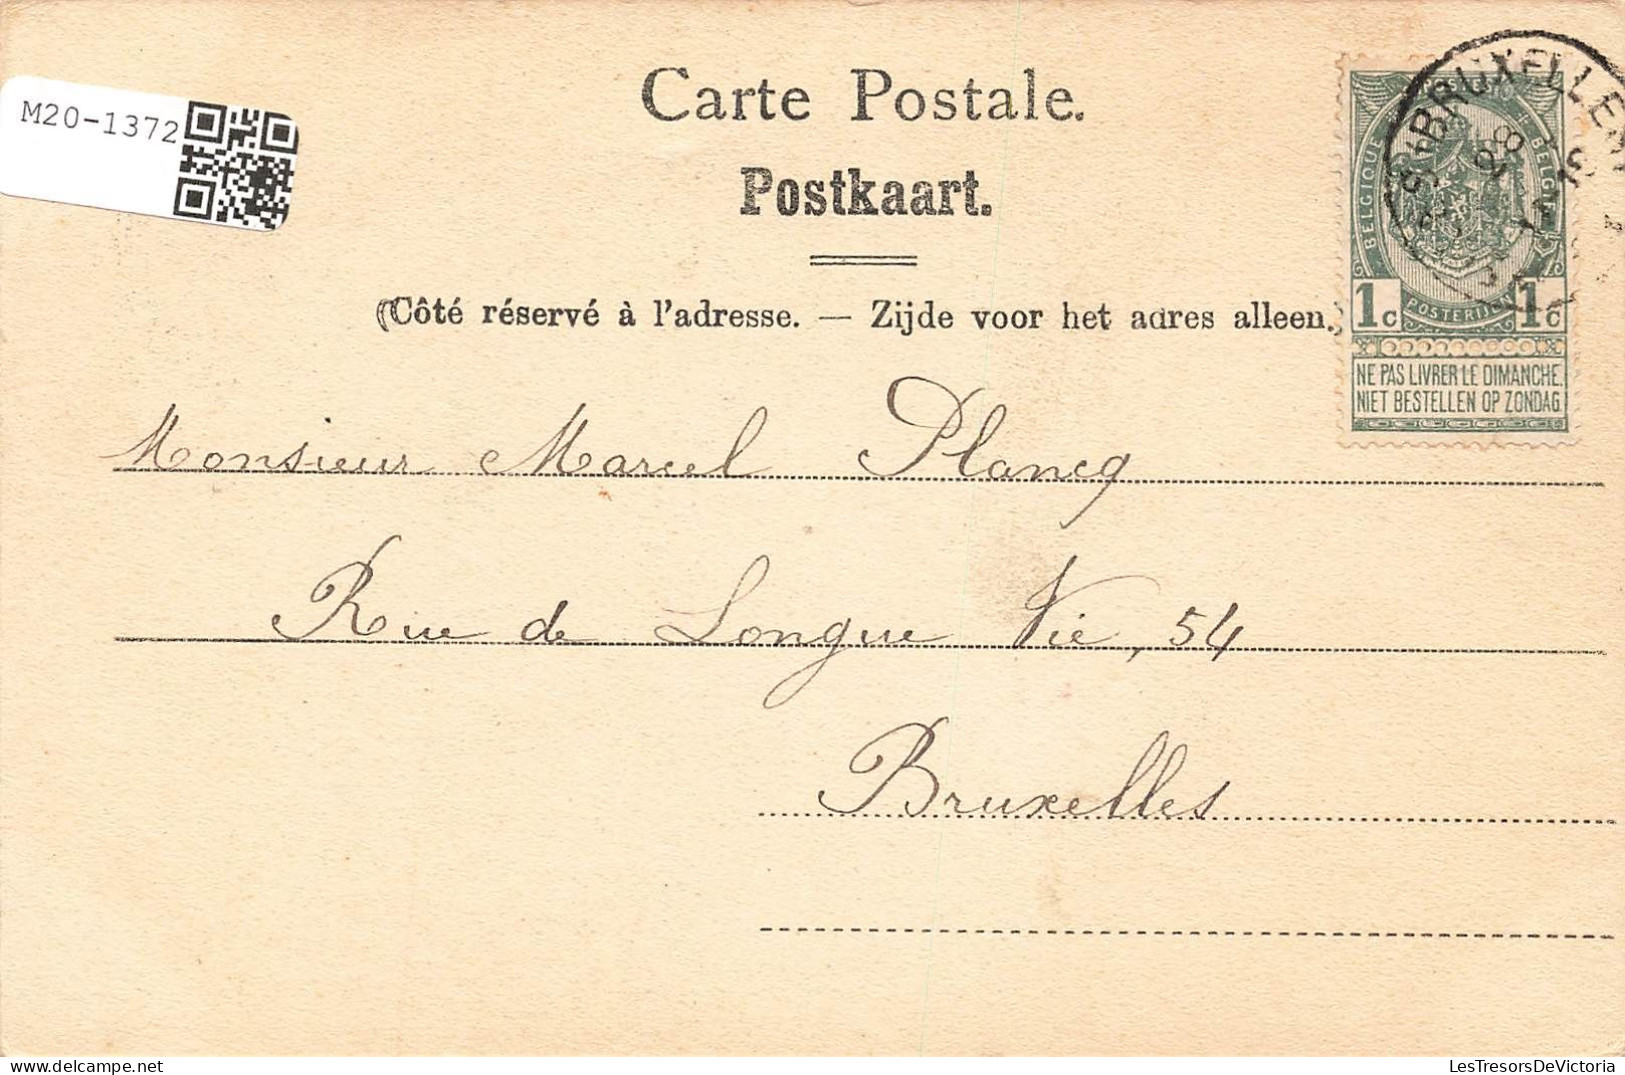 M20-1372
Carte Postale.
Postkaart.
(Côté réservé à l'adresse. — Zijde voor het adres alleen.)
BRUXELLES
28
BELGIQUE
BELGIË
1c POSTERIJEN 1c
NE PAS LIVRER LE DIMANCHE.
NIET BESTELLEN OP ZONDAG
Monsieur Marcel Plancq
Rue de Longue Vie, 54
Bruxelles
LesTresorsDeVictoria